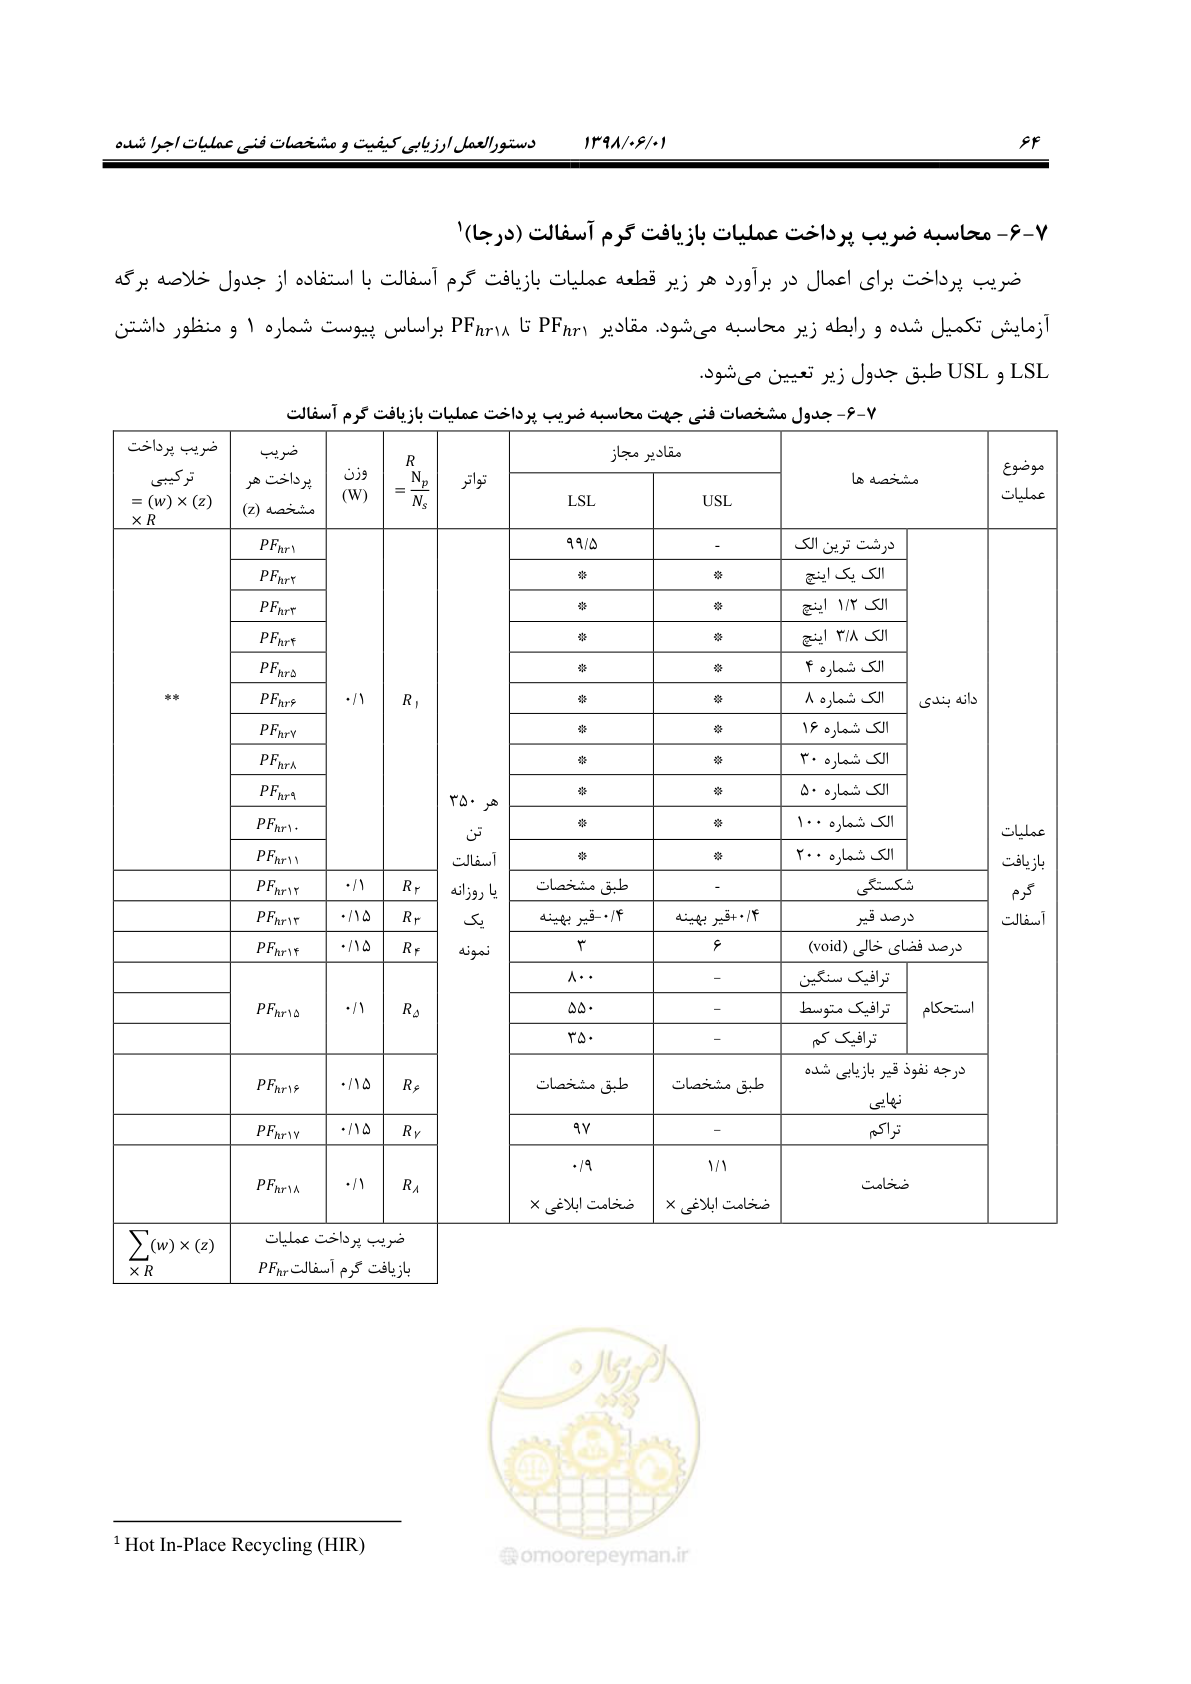 ۶۴ ۱۳۹۸/۰۶/۰۱ دستورالعمل ارزیابی کیفیت و مشخصات فنی عملیات اجرا شده
۷-۶- محاسبه ضریب پرداخت عملیات بازیافت گرم آسفالت (درجا)۱
ضریب پرداخت برای اعمال در برآورد هر زیر قطعه عملیات بازیافت گرم آسفالت با استفاده از جدول خلاصه برگه
آزمایش تکمیل شده و رابطه زیر محاسبه می‌شود. مقادیر PFhr۱ تا PFhr۱۸ براساس پیوست شماره ۱ و منظور داشتن
LSL و USL طبق جدول زیر تعیین می‌شود.
۷-۶- جدول مشخصات فنی جهت محاسبه ضریب پرداخت عملیات بازیافت گرم آسفالت
موضوع عملیات | مشخصه ها | مقادیر مجاز | تواتر | R = Np/Ns | وزن (W) | ضریب پرداخت هر مشخصه (z) | ضریب پرداخت ترکیبی = (w) × (z) × R
USL | LSL
عملیات بازیافت گرم آسفالت | دانه بندی | درشت ترین الک | - | ۹۹/۵ | هر ۳۵۰ تن آسفالت یا روزانه یک نمونه | R۱ | ۰/۱ | PFhr۱ | **
الک یک اینچ | * | * | PFhr۲
الک ۱/۲ اینچ | * | * | PFhr۳
الک ۳/۸ اینچ | * | * | PFhr۴
الک شماره ۴ | * | * | PFhr۵
الک شماره ۸ | * | * | PFhr۶
الک شماره ۱۶ | * | * | PFhr۷
الک شماره ۳۰ | * | * | PFhr۸
الک شماره ۵۰ | * | * | PFhr۹
الک شماره ۱۰۰ | * | * | PFhr۱۰
الک شماره ۲۰۰ | * | * | PFhr۱۱
شکستگی | - | طبق مشخصات | R۲ | ۰/۱ | PFhr۱۲
درصد قیر | ۰/۴+قیر بهینه | ۰/۴–قیر بهینه | R۳ | ۰/۱۵ | PFhr۱۳
درصد فضای خالی (void) | ۶ | ۳ | R۴ | ۰/۱۵ | PFhr۱۴
استحکام | ترافیک سنگین | – | ۸۰۰ | R۵ | ۰/۱ | PFhr۱۵
ترافیک متوسط | – | ۵۵۰
ترافیک کم | – | ۳۵۰
درجه نفوذ قیر بازیابی شده نهایی | طبق مشخصات | طبق مشخصات | R۶ | ۰/۱۵ | PFhr۱۶
تراکم | – | ۹۷ | R۷ | ۰/۱۵ | PFhr۱۷
ضخامت | ۱/۱ ضخامت ابلاغی × | ۰/۹ ضخامت ابلاغی × | R۸ | ۰/۱ | PFhr۱۸
ضریب پرداخت عملیات بازیافت گرم آسفالت PFhr | ∑(w) × (z) × R
امور پیمان
@omoorepeyman.ir
1 Hot In-Place Recycling (HIR)